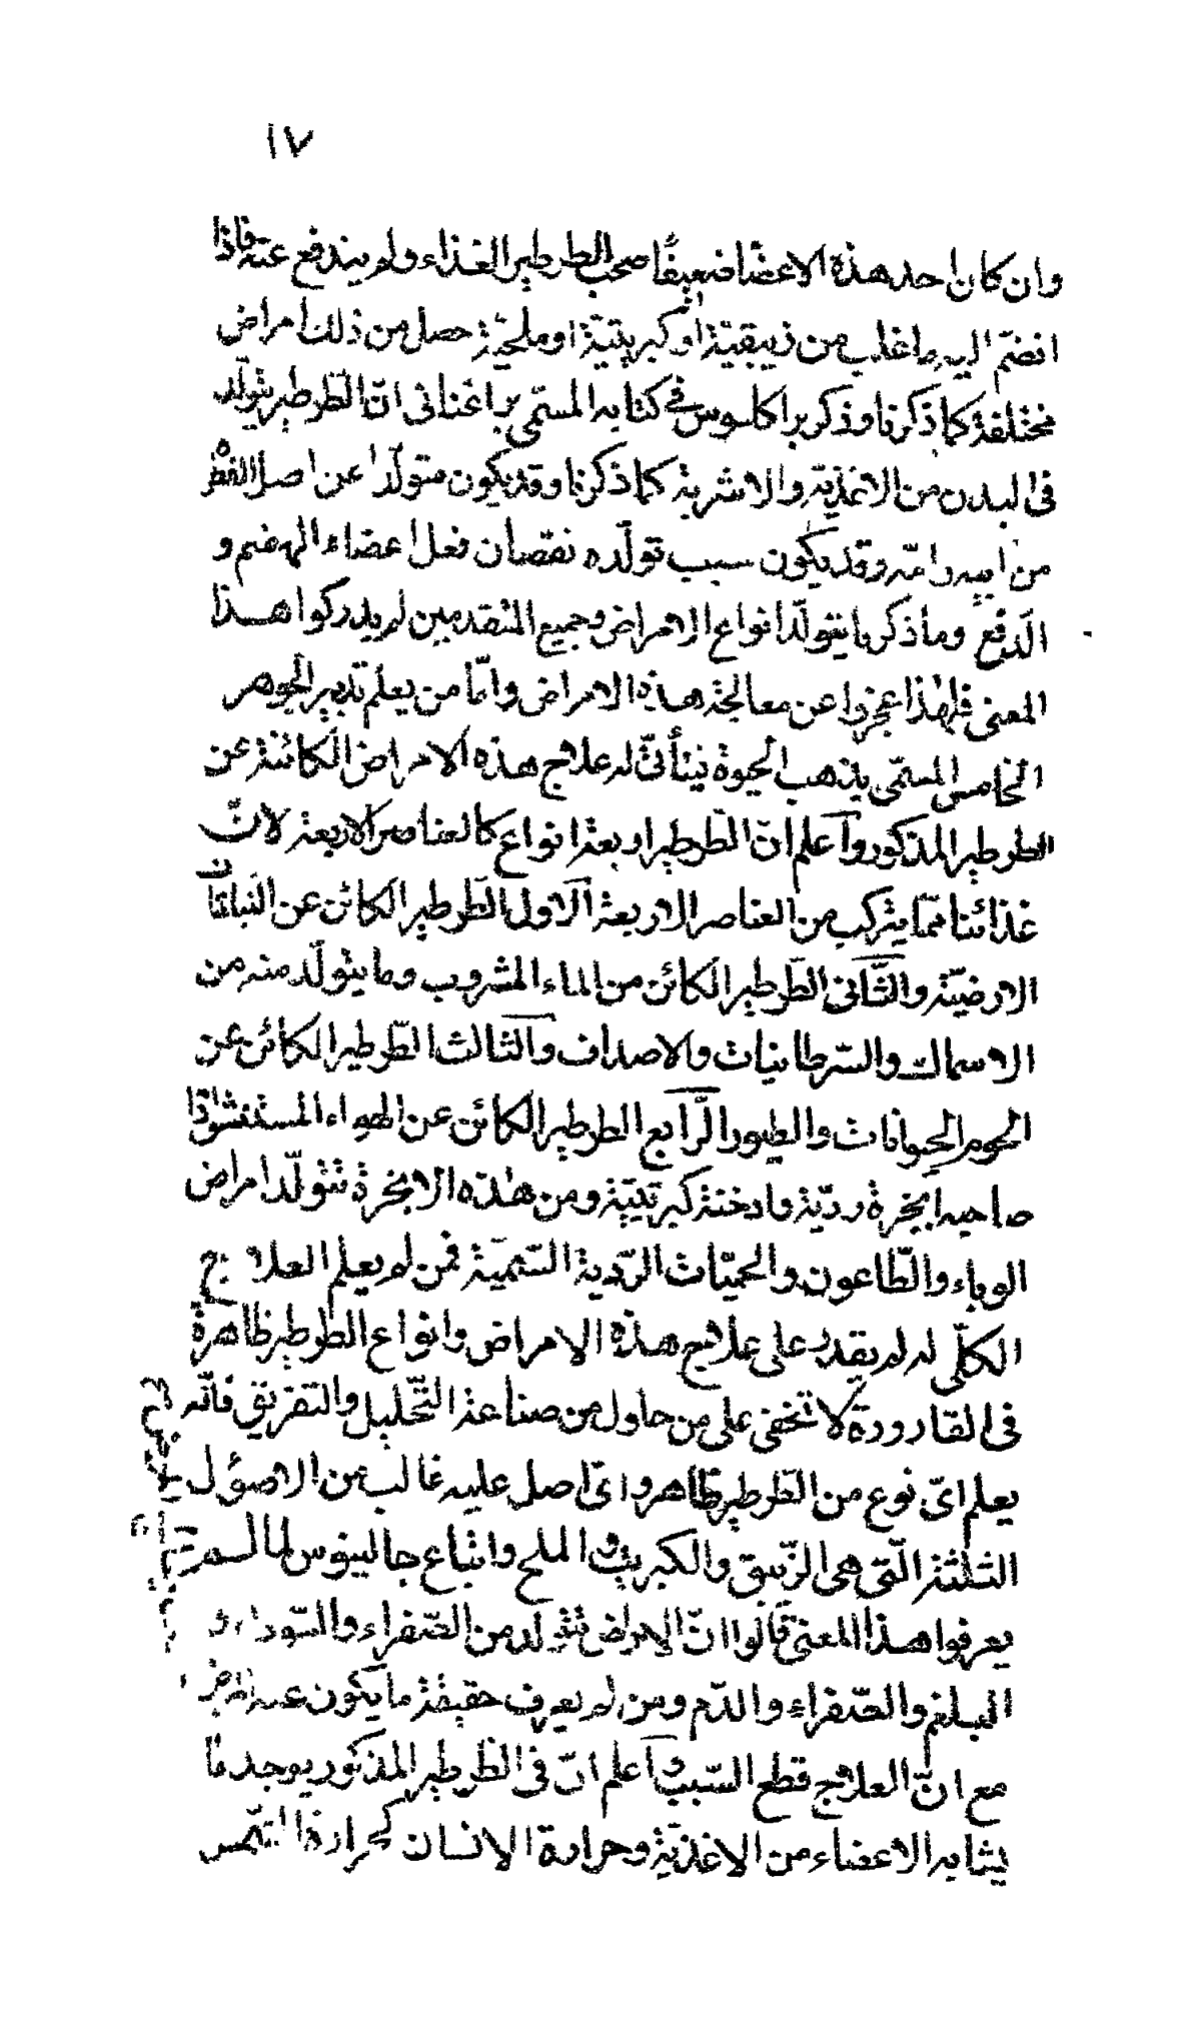 ١٧
وان كان احد هذه الاعضا ضعيفًا صحب الطرطير الغذاء ولم يندفع عنه فاذا
انضم اليه ما غلب من زيبقيّة او كبريتيّة او ملحيّة حصل من ذلك امراض
مختلفة كما ذكرنا وذكر براكلسوس في كتابه المسمّى براغنانى انّ الطّرطير يتولّد
فى البدن من الاغذية والاشربة كما ذكرنا وقد يكون متولّدا عن اصل الفطرة
من ابيه وامّه وقد يكون سبب تولّده نقصان فعل اعضاء الهضم و
الدّفع وما ذكرنا يتولّد انواع الامراض وجميع المتقدمين لم يدركوا هذا
المعنى فلهٰذا عجزوا عن معالجة هذه الامراض وامّا من يعلم تدبير الجوهر
الخامس المسمّى بذهب الحيوة يتأتّى له علاج هذه الامراض الكائنة عن
الطرطير المذكور وٱعلم انّ الطّرطير اربعة انواع كالعناصر الاربعة لانّ
غذائنا ممّا يتركب من العناصر الاربعة الاول الطّرطير الكائن عن النباتات
الارضيّة والثّانى الطّرطير الكائن من الماء المشروب وما يتولّد منه من
الاسماك والسّرطانيات والاصداف والثالث الطّرطير الكائن عن
لحوم الحيوانات والطيور الرّابع الطرطير الكائن عن الهواء المستنشق اذا
صاحبه ابخرة رديّة وادخنة كبريتيّة ومن هٰذه الابخرة تتولّد امراض
الوباء والطّاعون والحميّات الرّدية السّميّة فمن لم يعلم العلاج
الكلّى له لم يقدر على علاج هذه الامراض وانواع الطرطير ظاهرة
فى القارورة لا تخفى على من حاول من صناعة التّحليل والتفريق فانّه
يعلم اىّ نوع من الطّرطير ظاهر واىّ اصل عليه غالب من الاصول
الثلثة الّتى هى الزّيبق والكبريت والملح واتباع جالينوس لما لم
يعرفوا هذا المعنى قالوا انّ الامراض تتولد من الصّفراء والسّوداء و
البلغم والصّفراء والدّم ومن لم يعرف حقيقة ما يكون عنه المرض
مع انّ العلاج قطع السّبب وٱعلم انّ فى الطّرطير المذكور يوجد ما
يشابه الاعضاء من الاغذيّة وحرارة الانسان كحرارة الشّمس